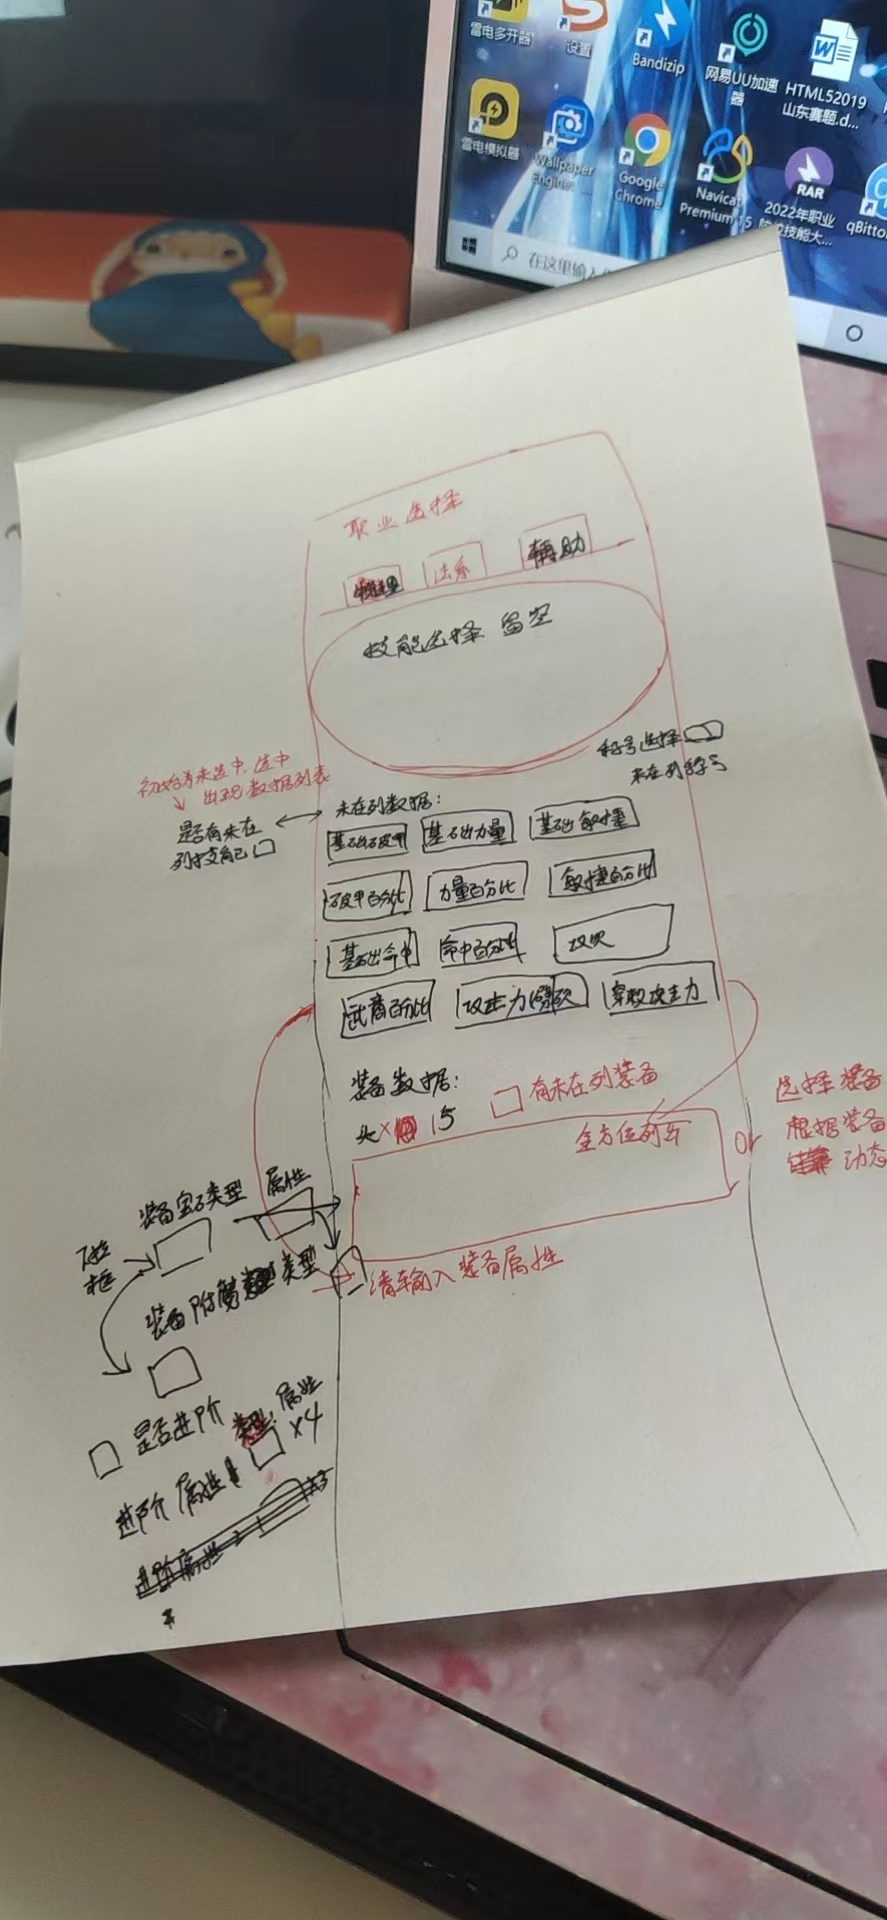 雷电多开器
设置
Bandizip
网易UU加速
器
HTML52019
山东赛题.d...
雷电模拟器
Wallpaper
Engine: ...
Google
Chrome
Navicat
Premium 15
RAR
2022年职业
院校技能大...
qBitto
在这里输入
职业选择
物理
法系
辅助
技能选择 留空
称号选择
未在列称号
初始为未选中,选中
出现数据列表
是否有未在
列技能
未在列数据:
基础破甲
基础力量
基础敏捷
破甲百分比
力量百分比
敏捷百分比
基础命中
命中百分比
攻失
武器百分比
攻击力
穿透攻击力
装备数据:
有未在列装备
头× 15
全方位列车
or
选择装备
根据装备
动态
请输入装备属性
装备宝石类型 属性
下拉
框
装备附魔类型
是否进阶
属性
×4
进阶属性